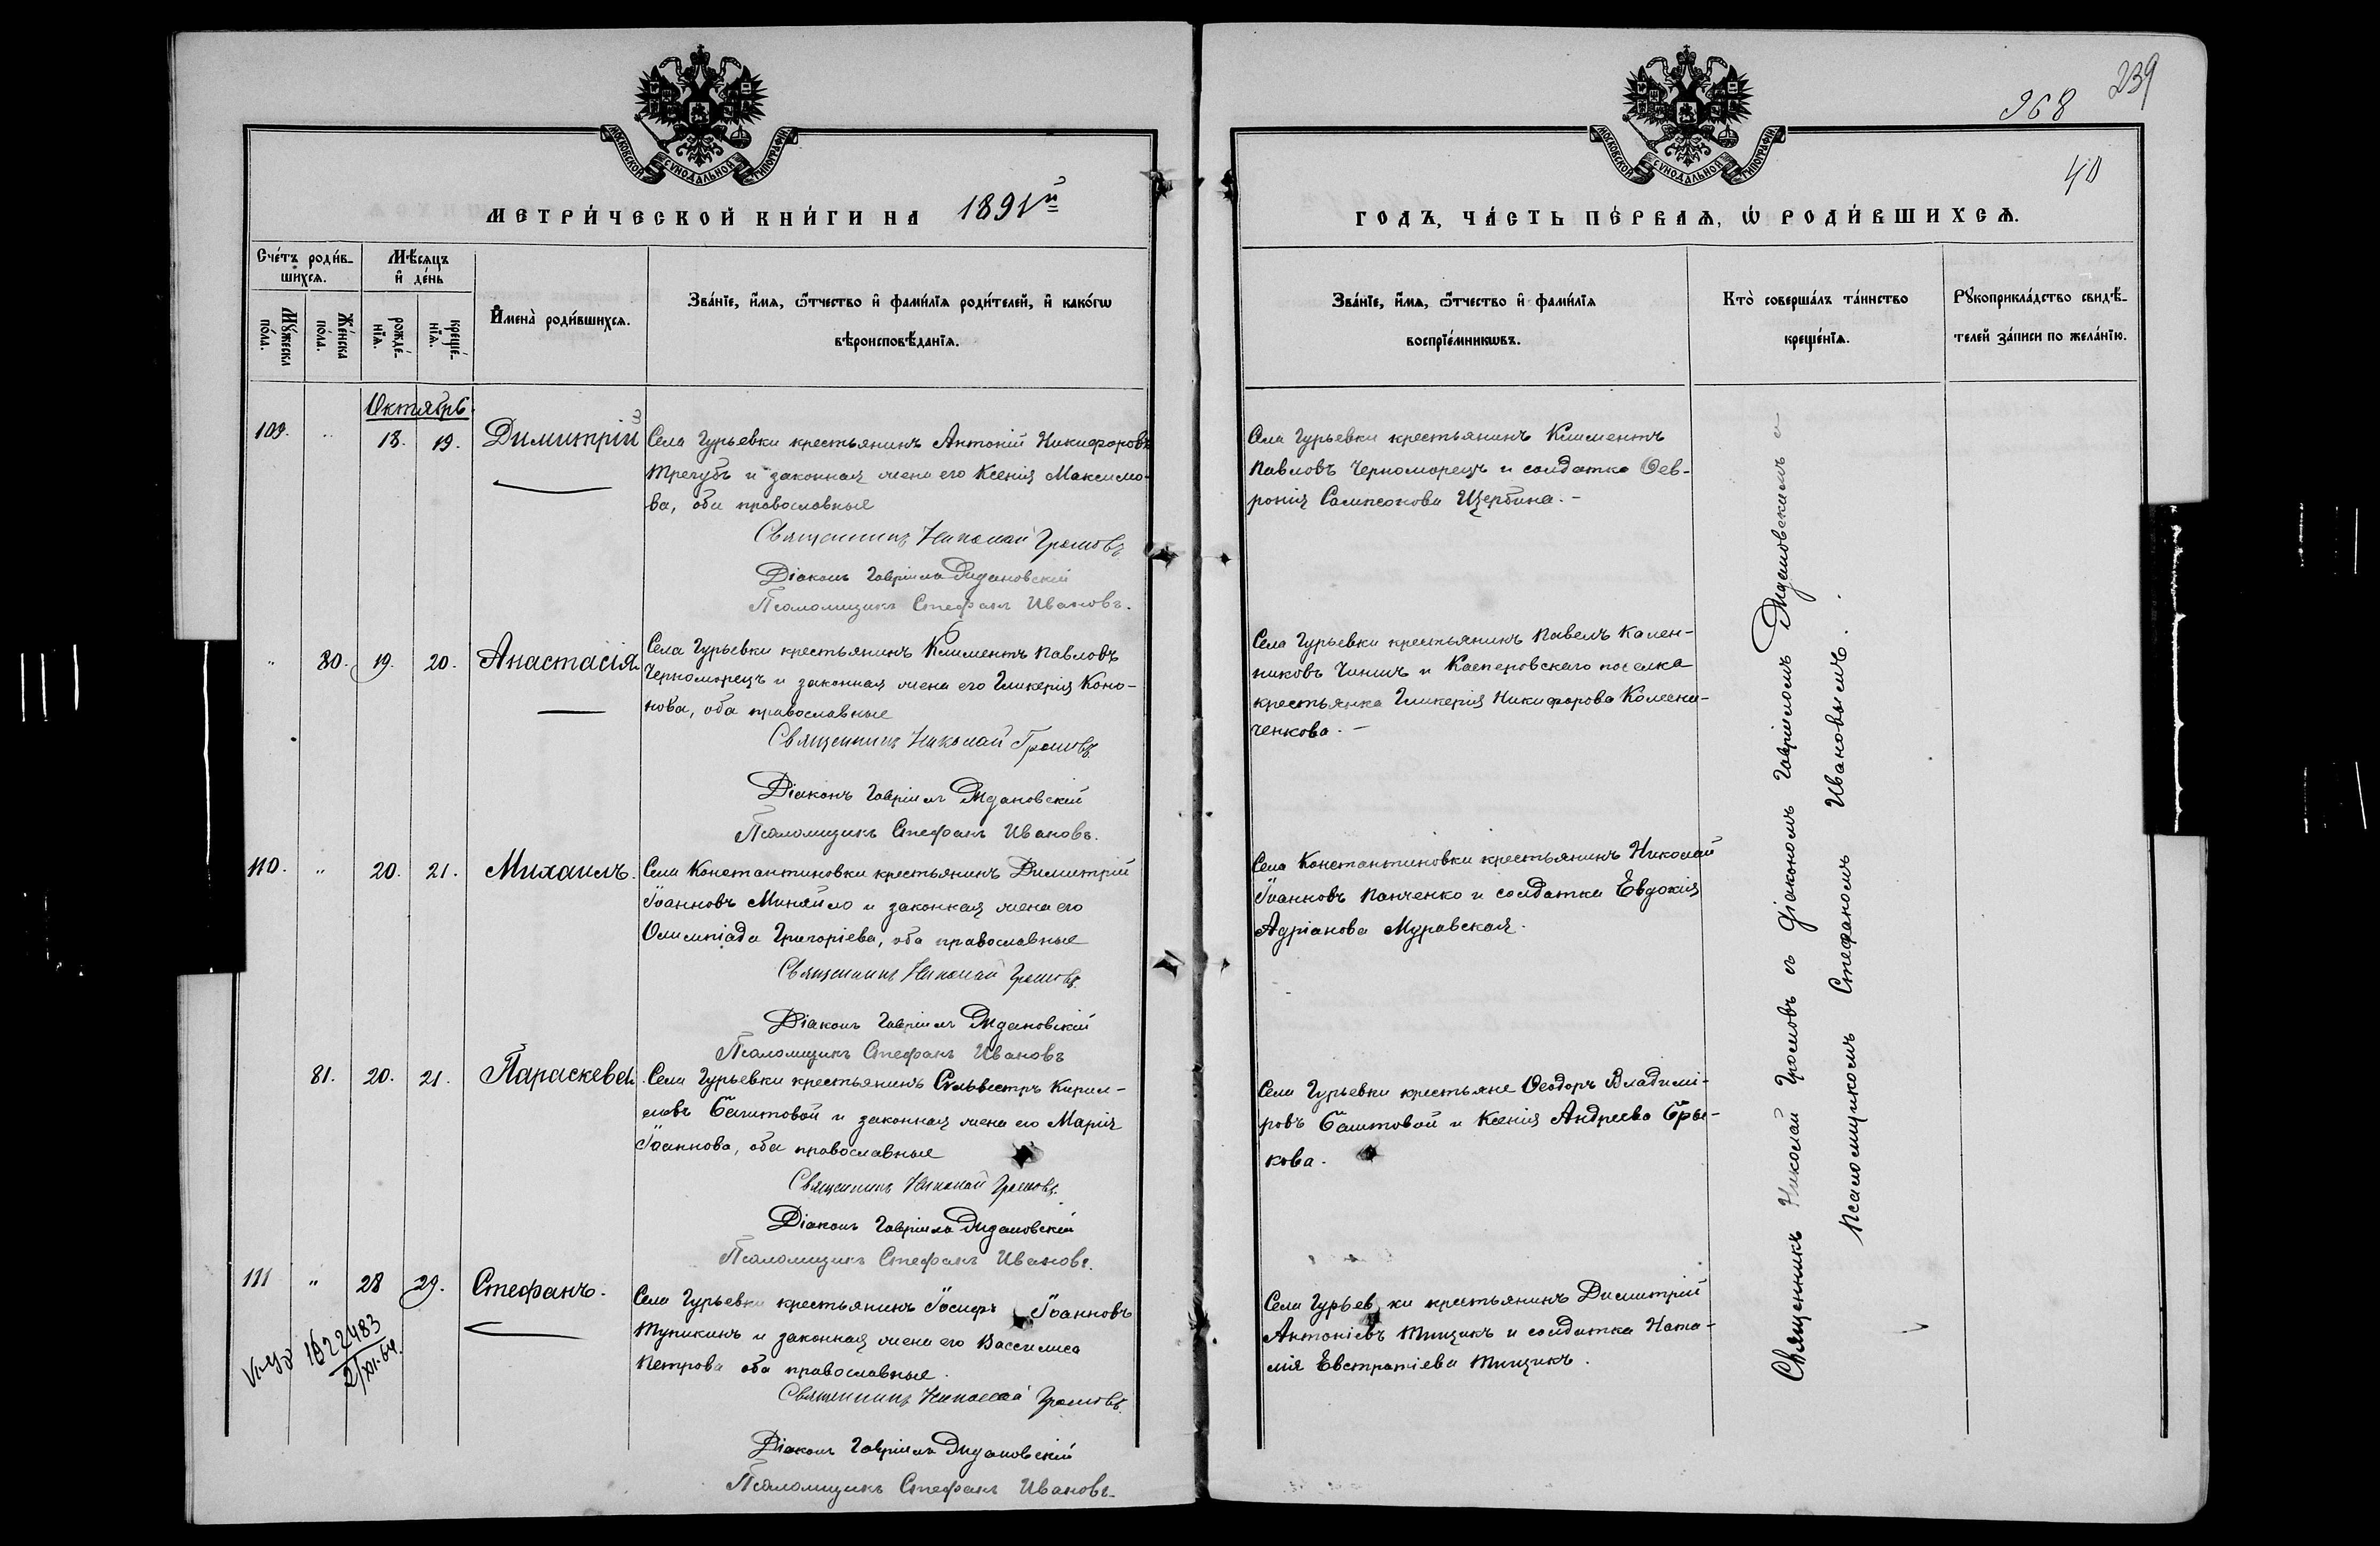 МОСКОВСКОЙ СУНОДАЛЬНОЙ ТИПОГРАФІИ
МЕТРИ́ЧЕСКОЙ КНИ́ГИ НА 1891й
Сче́тъ роди́в-
шихсѧ.
Мѣ́сѧцъ
и҆ де́нь
Мꙋ́жеска
по́ла.
Же́нска
по́ла.
рожде́-
нїѧ.
креще́-
нїѧ.
И҆мена̀ роди́вшихсѧ.
Зва́нїе, и҆́мѧ, ѻ҆́тчество и҆ фами́лїѧ роди́телей, и҆ како́гѡ
вѣроисповѣ́данїѧ.
Октябрь.
109. " 18. 19. Димитрій
3
Села Гурьевки крестьянинъ Антоній Никифоровъ
Трегубъ и законная жена его Ксенія Максимо-
ва, оба православные
Священникъ Николай Громовъ
Діаконъ Гавріилъ Дидановскій
Псаломщикъ Стефанъ Ивановъ.
" 80. 19. 20. Анастасія.
Села Гурьевки крестьянинъ Климентъ Павловъ
Черноморецъ и законная жена его Гликерія Коно-
нова, оба православные
Священникъ Николай Громовъ
Діаконъ Гавріилъ Дидановскій
Псаломщикъ Стефанъ Ивановъ.
110. " 20. 21. Михаилъ.
Села Константиновки крестьянинъ Димитрій
Іоанновъ Миняйло и законная жена его
Олимпіада Григоріева, оба православные
Священникъ Николай Громовъ
Діаконъ Гавріилъ Дидановскій
Псаломщикъ Стефанъ Ивановъ
81. 20. 21. Параскева.
Села Гурьевки крестьянинъ Сильвестръ Кирил-
ловъ Баштовой и законная жена его Марія
Іоаннова, оба православные
Священникъ Николай Громовъ.
Діаконъ Гавріилъ Дидановскій
Псаломщикъ Стефанъ Ивановъ.
111 " 28 29. Стефанъ.
Села Гурьевки крестьянинъ Іосифъ Іоанновъ
Тупикинъ и законная жена его Вассилиса
Петрова оба православные.
Священникъ Николай Громовъ.
Діаконъ Гавріилъ Дидановскій
Псаломщикъ Стефанъ Ивановъ.
1622483
2/XI-64.
239
368
40
МОСКОВСКОЙ СУНОДАЛЬНОЙ ТИПОГРАФІИ
ГОДЪ, ЧА́СТЬ ПЕ́РВАѦ, Ѽ РОДИ́ВШИХСѦ.
Зва́нїе, и҆́мѧ, ѻ҆́тчество и҆ фами́лїѧ
воспрїе́мникѡвъ.
Кто̀ соверша́лъ та́инство
креще́нїѧ.
Рꙋкоприкла́дство свидѣ́-
телей за́писи по жела́нїю.
Села Гурьевки крестьянинъ Климентъ
Павловъ Черноморецъ и солдатка Фев-
ронія Сампсонова Щербина.-
Села Гурьевки крестьянинъ Павелъ Камен-
никовъ Чиничъ и Касперовскаго поселка
крестьянка Гликерія Никифорова Колесни-
ченкова.-
Села Константиновки крестьянинъ Николай
Іоанновъ Панченко и солдатка Евдокія
Адріанова Муравская.
Села Гурьевки крестьяне Ѳеодоръ Владимі-
ровъ Баштовой и Ксенія Андреева Бры-
кова.
Села Гурьевки крестьянинъ Димитрій
Антоніевъ Тищикъ и солдатка Ната-
лія Евстратіева Тищикъ.
Священникъ Николай Громовъ съ діакономъ Гавріиломъ Дидановскимъ и
псаломщикомъ Стефаномъ Ивановымъ.